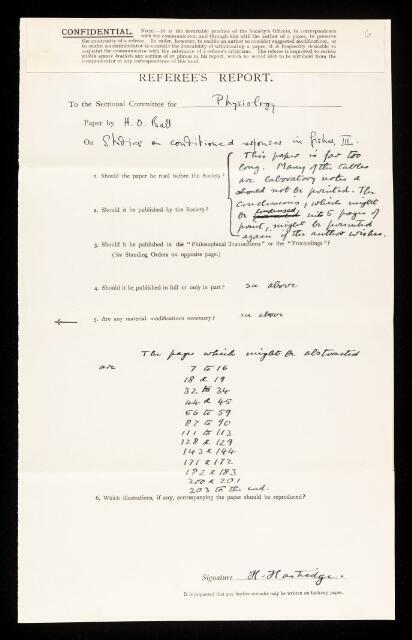 6
CONFIDENTIAL. NOTE.—It is the invariable practice of the Society's Officers, in correspondence
with the communicator, and through him with the author of a paper, to preserve
the anonymity of a referee. In order, however, to enable an author to consider suggested modifications, or
to enable a communicator to consider the desirability of withdrawing a paper, it is frequently desirable to
acquaint the communicator with the substance of a referee's criticisms. The referee is requested to enclose
within square brackets any section of or phrase in his report, which he would wish to be withheld from the
communicator in any correspondence of this kind.
REFEREE'S REPORT.
To the Sectional Committee for Physiology
Paper by H. O. Bull
On Studies on conditioned responses in fishes, III.
This paper is far too
long. Many of the tables
1. Should the paper be read before the Society? are laboratory notes &
should not be printed. The
conclusions, which might
2. Should it be published by the Society? be condensed, into 5 pages of
print, might be presented
again if the author wishes.
3. Should it be published in the "Philosophical Transactions" or the "Proceedings"?
(See Standing Orders on opposite page.)
4. Should it be published in full or only in part? see above
5. Are any material modifications necessary? see above
The pages which might be abstracted
are 7 to 16
18 & 19
32 to 34
44 & 45
56 to 59
87 to 90
111 to 113
128 & 129
143 & 144
171 & 172
182 & 183
200 & 201
203 to the end.
6. Which illustrations, if any, accompanying the paper should be reproduced?
Signature H. Hartridge.
It is requested that any further remarks may be written on the